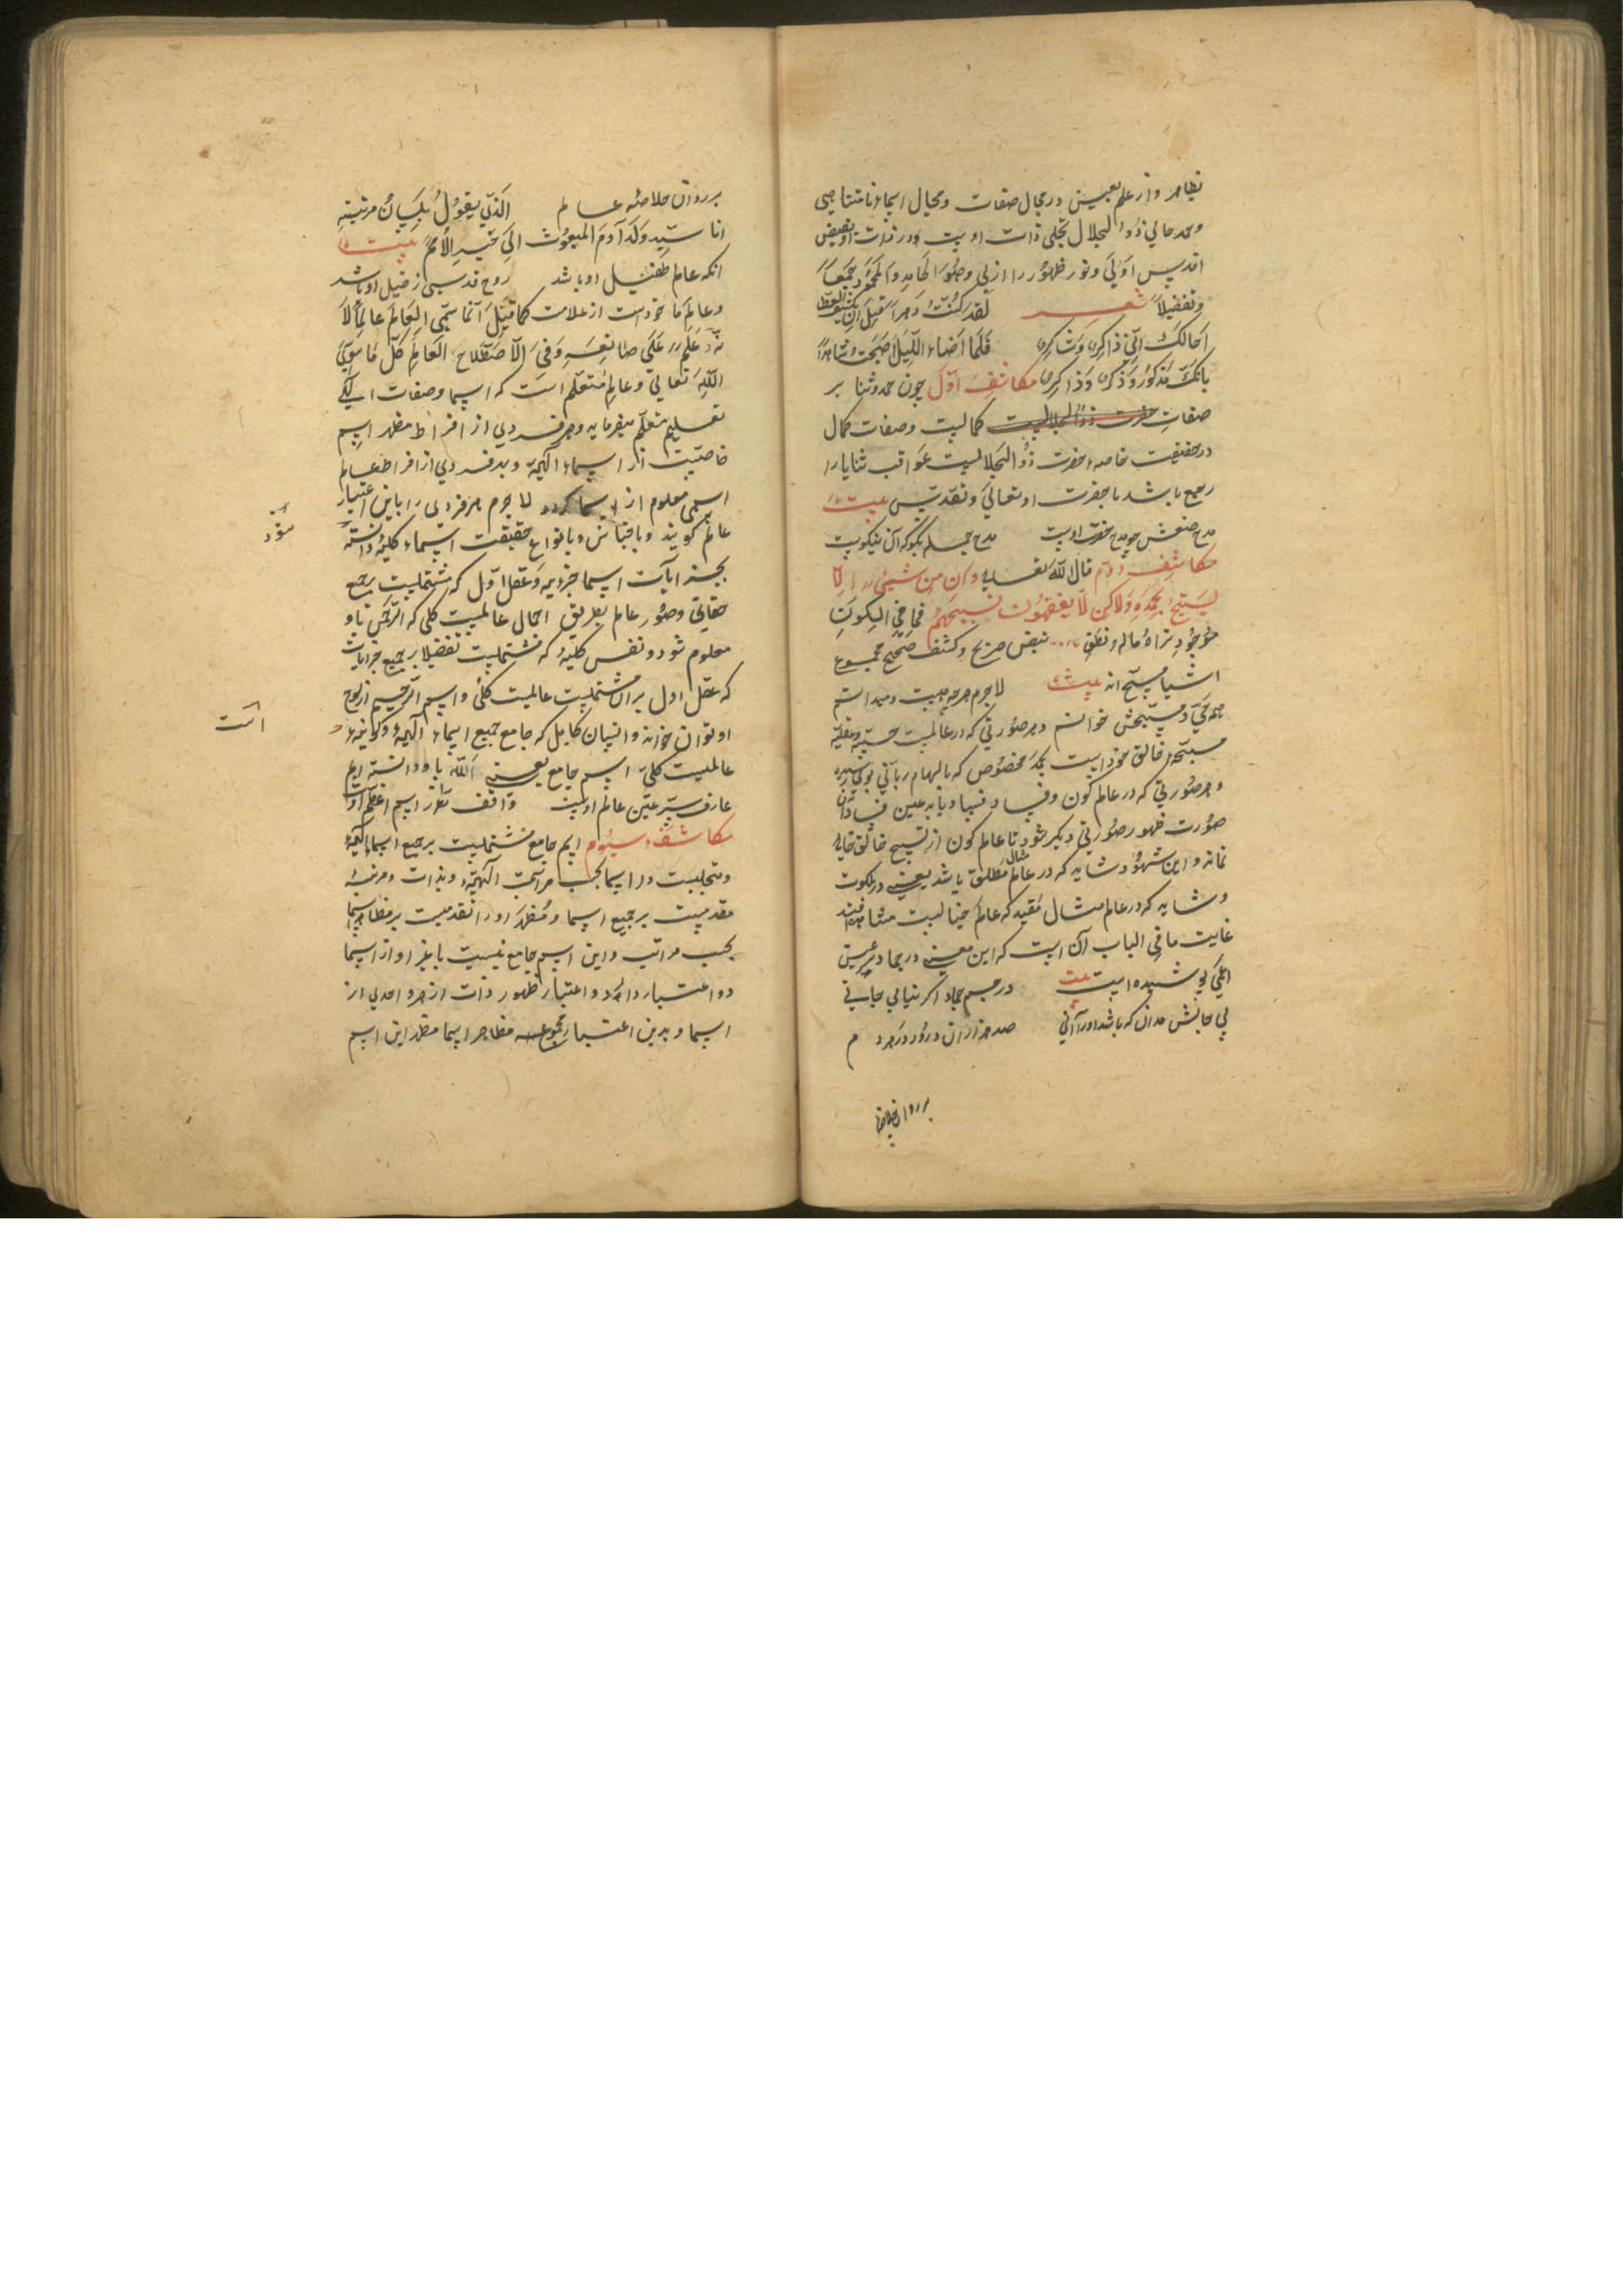 بظاهر و از علم بعین در مجال صفات و مجال اسماء نامتناهی
و حمد حالی ذوالجلال تجلی ذات اوست در ذات او بفیض
اقدس اولی و نور ظهور را ازلی و هو الحامد و المحمود جمعاً
و تفصیلاً شعر لقد کنت دهراً قبل ان یکشف الغطا
اخالک انی ذاکر و شاکر فلما اضاء اللیل اصبحت شاهدا
بانک مذکور و ذکر و ذاکر مکاشفه اول چون حمد و ثنا بر
صفات کمالست و صفات کمال
در حقیقت خاصه حضرت ذو الجلالست عواقب ثنایا را
رجوع باشد با حضرت او تعالی و تقدس بیت
مدح صنعش چو مدح حضرت اوست مدح جمله بگو که آن نیکوست
مکاشفه دوم قال الله تعالی و ان من شیئ الا
یسبح بحمده ولاکن لا یفقهون تسبیحهم فما فی الکون
موجود تراه ماله نطق بنص صریح و کشف صحیح مجموع
اشیا مسبح اند بیت لاجرم هرچه هست و میدانم
همه حی و مسبحش خوانم و هر صورتی که در عالمست حسیه و عقلیه
مسبحه خالق خود است بحمد مخصوص که بالهام ربانی بوی رسیده
و هر صورتی که در عالم کون و فساد فساد یابد عین فساد آن
صورت ظهور صورتی دیگر شود تا عالم کون از تسبیح خالق خالی
نماند و این شهود شاید که در عالم مثال مطلق باشد یعنی در ملکوت
و شاید که در عالم مثال مقید که عالم خیالست مشاهده افتد
غایت ما فی الباب آن است که این معنی در جماد بر عین
اعلی پوشیده است بیت در جسم جماد اگر نیابی جانی
بی جانش مدان که باشد او را آنی صد هزاران درود در هر دم
بر روان خلاصه
بر روان خلاصه عالم الذی یقول بلسان مرتبته
انا سید ولد آدم المبعوث الی خیر الامم بیت
آنکه عالم طفیل او باشد روح قدسی ز خیل او باشد
و عالم ماخوذ است از علامت کما قیل انما سمی العالم عالماً لانه
علم علی صانعه و فی الاصطلاح العالم کل ما سوی
الله تعالی و عالم متعلم است که اسما و صفات الهی
تعلیم متعلم میفرماید و هر فردی از افراد مظهر اسم
خاصیت از اسماء الهیه و بهر فردی از افراد عالم
اسمی معلوم از اسما کردد لاجرم هر فردی را باین اعتبار
عالم گویند و باجناس و بانواع حقیقت اسماء کلیه دانسته
شود
بجزئیات اسما جزویه و عقل اول که مشتملست بر جمیع
حقایق و صور عالم بطریق اجمال عالمیست کلی که الرحمن باو
معلوم شود و نفس کلیه که مشتملست تفضیلا بر جمیع جزئیات
که عقل اول بران مشتملست عالمیست کلی و اسم الرحیم از لوح
است
او توان خواند و انسان کامل که جامع جمیع اسماء الهیه و کونیه
عالمیست کلی اسم جامع یعنی الله باو دانسته ایم
عارف سر عین عالم اوست واقف راز اسم اعظم اوست
مکاشفه سیوم اسم جامع مشتملست بر جمیع اسماء الهیه
و متجلیست در اسما بحسب مراتب الهیه و بذات و مرتبه
مقدمست بر جمیع اسما و مظهر او را تقدمست بر مظاهر اسما
بحسب مراتب و این اسم جامع نسبت با غیر او از اسما
دو اعتبار دارد اعتبار ظهور ذات از هر واحدی از
اسما و بدین اعتبار مجموع مظاهر اسما مظهر این اسم